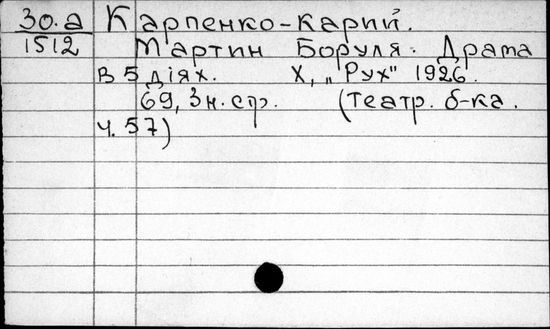 30.а Карпенко-Карий.
1512 Мартин Боруля. Драма
в 5 діях. Х, „Рух" 1926.
69, 3 н. ст. (Театр. б-ка.
ч. 57)